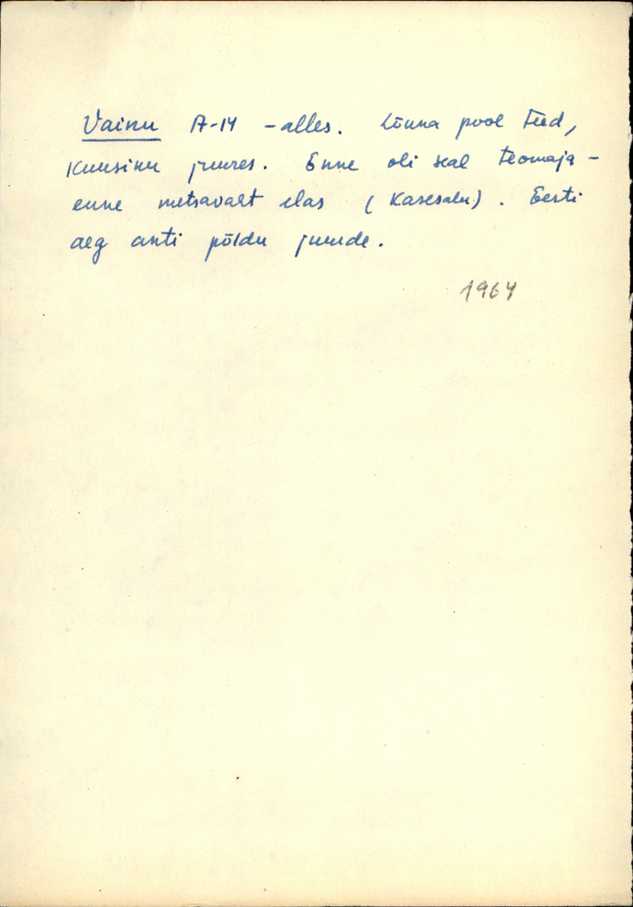 Vainu A-14 - alles. Lõuna pool teed,
Kuusiku juures. Enne oli seal Teomaja -
enne metsavaht elas (Kasesalu). Eesti
aeg anti põldu juurde.
1964